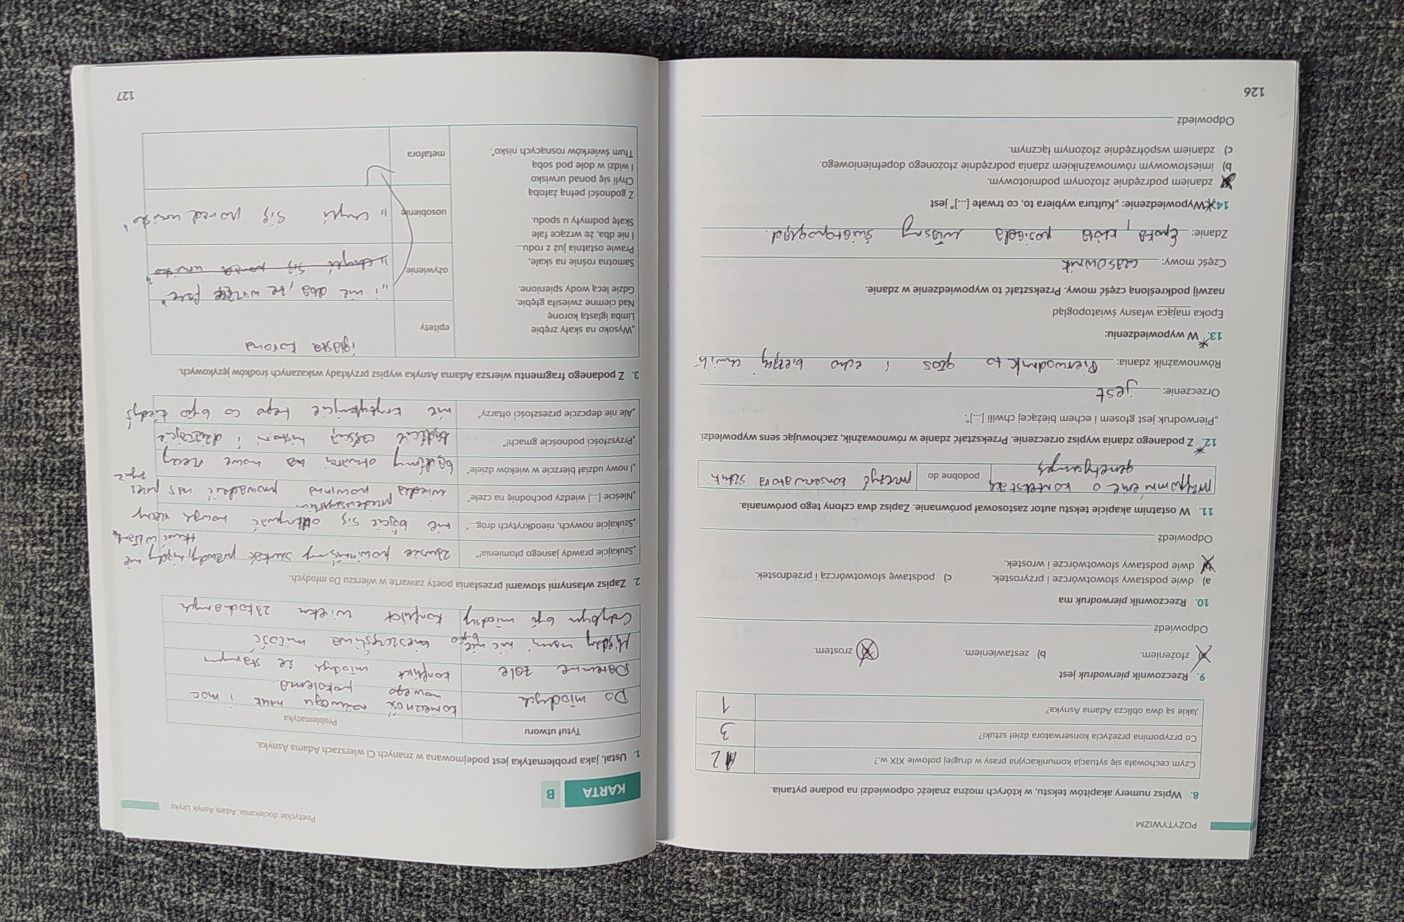 POZYTYWIZM
8. Wpisz numery akapitów tekstu, w których można znaleźć odpowiedzi na podane pytania.
Czym cechowała się sytuacja komunikacyjna prasy w drugiej połowie XIX w.? 2
Co przypomina przeżycia konserwatora dzieł sztuki? 3
Jakie są dwa oblicza Adama Asnyka? 1
9. Rzeczownik pierwodruk jest
a) złożeniem. b) zestawieniem. c) zrostem.
Odpowiedź
10. Rzeczownik pierwodruk ma
a) dwie podstawy słowotwórcze i przyrostek. c) podstawę słowotwórczą i przedrostek.
b) dwie podstawy słowotwórcze i wrostek.
Odpowiedź
11. W ostatnim akapicie tekstu autor zastosował porównanie. Zapisz dwa człony tego porównania.
przypomnienie o kontekście
genetycznym
podobne do
przeżyć konserwatora sztuki
12. Z podanego zdania wypisz orzeczenie. Przekształć zdanie w równoważnik, zachowując sens wypowiedzi.
„Pierwodruk jest głosem i echem bieżącej chwili [...]".
Orzeczenie: jest
Równoważnik zdania: Pierwodruk to głos i echo bieżącej chwili.
13. W wypowiedzeniu:
Epoka mająca własny światopogląd
nazwij podkreśloną część mowy. Przekształć to wypowiedzenie w zdanie.
Część mowy: czasownik
Zdanie: Epoka, która posiada własny światopogląd.
14. Wypowiedzenie: „Kultura wybiera to, co trwałe [...]" jest
a) zdaniem podrzędnie złożonym podmiotowym.
b) imiesłowowym równoważnikiem zdania podrzędnie złożonego dopełnieniowego.
c) zdaniem współrzędnie złożonym łącznym.
Odpowiedź
126
Poetyckie dociekania. Adam Asnyk Liryka
KARTA B
1. Ustal, jaka problematyka jest podejmowana w znanych Ci wierszach Adama Asnyka.
Tytuł utworu Problematyka
Do młodych konieczność rozwoju nauk i moc
nowego pokolenia.
Daremne żale konflikt młodych ze starym
Między nami nic nie było nieszczęśliwa miłość
Gdybym był młodszy konflikt wieku zakochanych
2. Zapisz własnymi słowami przesłania poety zawarte w wierszu Do młodych.
„Szukajcie prawdy jasnego płomienia!" zawsze powinniśmy szukać prawdy, nigdy nie
„Szukajcie nowych, nieodkrytych dróg..." nie bójcie się odkrywać nowych rzeczy
„Nieście [...] wiedzy pochodnię na czele" wiedza powinna prowadzić nas przez
przede wszystkim
życie
„I nowy udział bierzcie w wieków dziele" bądźmy otwarci na nowe rzeczy
„Przyszłości podnoście gmach!"
„Ale nie depczcie przeszłości ołtarzy" nie krytykujcie tego co było kiedyś
3. Z podanego fragmentu wiersza Adama Asnyka wypisz przykłady wskazanych środków językowych.
„Wysoko na skały zrębie
Limba iglastą koronę
Nad ciemne zwiesiła głębie,
Gdzie lecą wody spienione.
Samotna rośnie na skale,
Prawie ostatnia już z rodu...
I nie dba, że wrzące fale
Skałę podmyły u spodu.
Z godności pełną żałobą
Chyli się ponad urwisko
I widzi w dole pod sobą
Tłum świerków rosnących nisko".
epitety iglasta korona
ożywienie „i nie dba, że wrzące fale"
„chyli się ponad urwisko"
uosobienie „chyli się ponad urwisko"
metafora
127